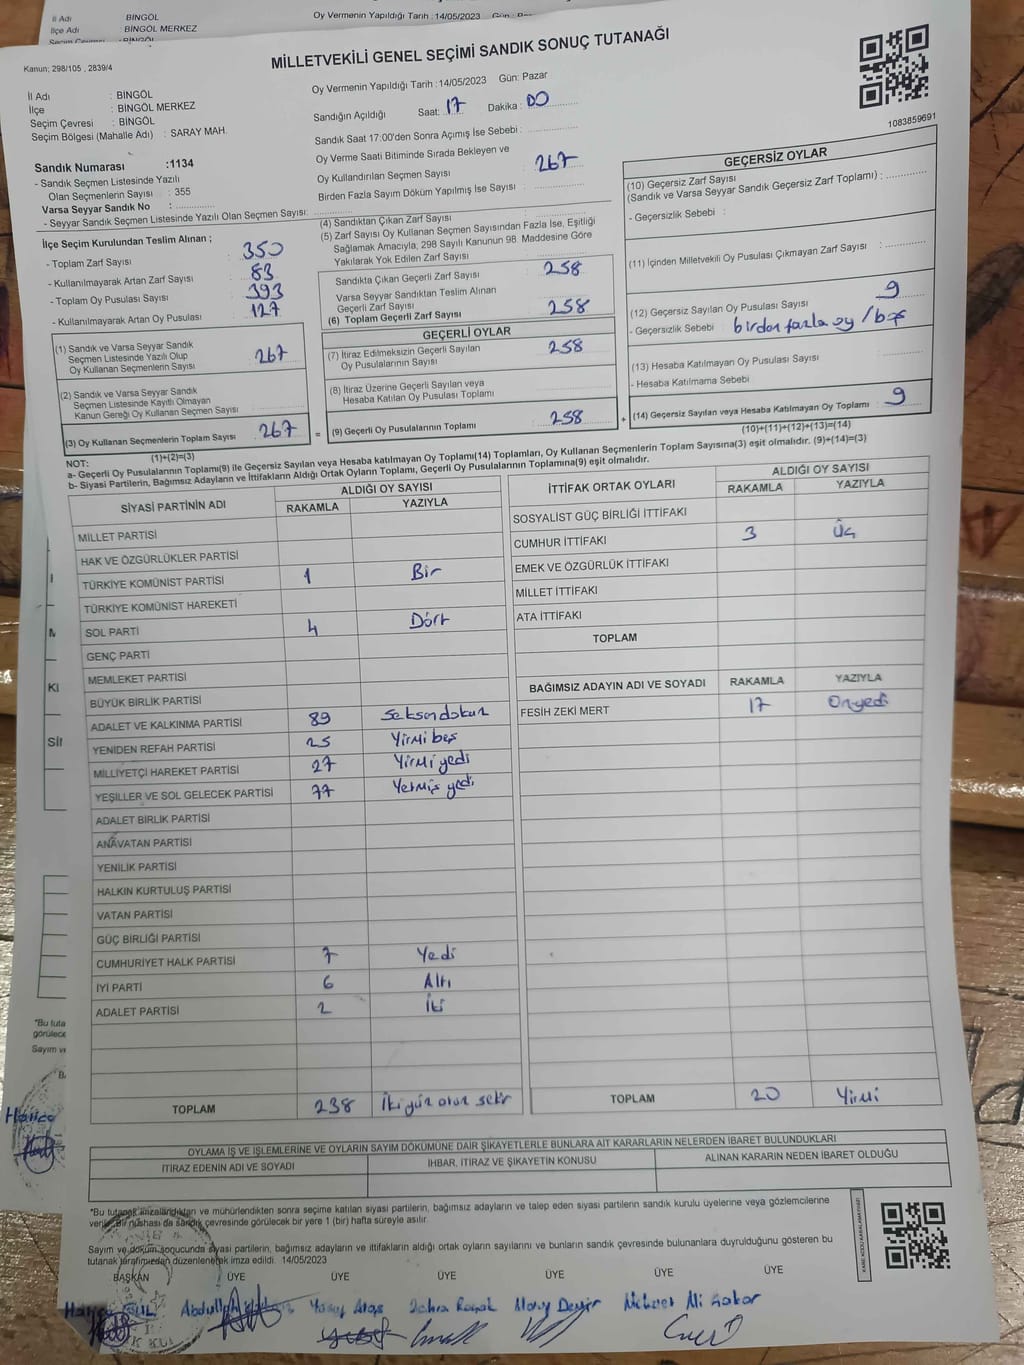 İl Adı BİNGÖL
İlçe Adı : BİNGÖL MERKEZ
Oy Vermenin Yapıldığı Tarih : 14/05/2023
Kanun; 298/105 , 2839/4
MİLLETVEKİLİ GENEL SEÇİMİ SANDIK SONUÇ TUTANAĞI
1083859691
İl Adı : BİNGÖL
İlçe : BİNGÖL MERKEZ
Seçim Çevresi : BİNGÖL
Seçim Bölgesi (Mahalle Adı) : SARAY MAH.
Oy Vermenin Yapıldığı Tarih : 14/05/2023 Gün: Pazar
Sandığın Açıldığı Saat: 17 Dakika : 00
Sandık Saat 17:00'den Sonra Açımış İse Sebebi :
Oy Verme Saati Bitiminde Sırada Bekleyen ve
Oy Kullandırılan Seçmen Sayısı : 267
Birden Fazla Sayım Döküm Yapılmış İse Sayısı :
Sandık Numarası :1134
- Sandık Seçmen Listesinde Yazılı
Olan Seçmenlerin Sayısı : 355
Varsa Seyyar Sandık No :
- Seyyar Sandık Seçmen Listesinde Yazılı Olan Seçmen Sayısı:
İlçe Seçim Kurulundan Teslim Alınan ;
- Toplam Zarf Sayısı : 350
- Kullanılmayarak Artan Zarf Sayısı : 83
- Toplam Oy Pusulası Sayısı : 393
- Kullanılmayarak Artan Oy Pusulası : 127
(1) Sandık ve Varsa Seyyar Sandık
Seçmen Listesinde Yazılı Olup
Oy Kullanan Seçmenlerin Sayısı : 267
(2) Sandık ve Varsa Seyyar Sandık
Seçmen Listesinde Kayıtlı Olmayan
Kanun Gereği Oy Kullanan Seçmen Sayısı
(3) Oy Kullanan Seçmenlerin Toplam Sayısı 267
(1)+(2)=(3)
(4) Sandıktan Çıkan Zarf Sayısı
(5) Zarf Sayısı Oy Kullanan Seçmen Sayısından Fazla İse, Eşitliği
Sağlamak Amacıyla, 298 Sayılı Kanunun 98. Maddesine Göre
Yakılarak Yok Edilen Zarf Sayısı
Sandıkta Çıkan Geçerli Zarf Sayısı : 258
Varsa Seyyar Sandıktan Teslim Alınan
Geçerli Zarf Sayısı
(6) Toplam Geçerli Zarf Sayısı : 258
GEÇERLİ OYLAR
(7) İtiraz Edilmeksizin Geçerli Sayılan
Oy Pusulalarının Sayısı : 258
(8) İtiraz Üzerine Geçerli Sayılan veya
Hesaba Katılan Oy Pusulası Toplamı
= (9) Geçerli Oy Pusulalarının Toplamı : 258 +
GEÇERSİZ OYLAR
(10) Geçersiz Zarf Sayısı
(Sandık ve Varsa Seyyar Sandık Geçersiz Zarf Toplamı) :
- Geçersizlik Sebebi :
(11) İçinden Milletvekili Oy Pusulası Çıkmayan Zarf Sayısı :
(12) Geçersiz Sayılan Oy Pusulası Sayısı : 9
- Geçersizlik Sebebi : birden fazla oy / boş
(13) Hesaba Katılmayan Oy Pusulası Sayısı
- Hesaba Katılmama Sebebi
(14) Geçersiz Sayılan veya Hesaba Katılmayan Oy Toplamı : 9
(10)+(11)+(12)+(13)=(14)
NOT:
a- Geçerli Oy Pusulalarının Toplamı(9) ile Geçersiz Sayılan veya Hesaba katılmayan Oy Toplamı(14) Toplamları, Oy Kullanan Seçmenlerin Toplam Sayısına(3) eşit olmalıdır. (9)+(14)=(3)
b- Siyasi Partilerin, Bağımsız Adayların ve İttifakların Aldığı Ortak Oyların Toplamı, Geçerli Oy Pusulalarının Toplamına(9) eşit olmalıdır.
SİYASİ PARTİNİN ADI ALDIĞI OY SAYISI
RAKAMLA YAZIYLA
MİLLET PARTİSİ
HAK VE ÖZGÜRLÜKLER PARTİSİ
TÜRKİYE KOMÜNİST PARTİSİ 1 Bir
TÜRKİYE KOMÜNİST HAREKETİ
SOL PARTİ 4 Dört
GENÇ PARTİ
MEMLEKET PARTİSİ
BÜYÜK BİRLİK PARTİSİ
ADALET VE KALKINMA PARTİSİ 89 Seksendokuz
YENİDEN REFAH PARTİSİ 25 Yirmi beş
MİLLİYETÇİ HAREKET PARTİSİ 27 Yirmi yedi
YEŞİLLER VE SOL GELECEK PARTİSİ 77 Yetmiş yedi
ADALET BİRLİK PARTİSİ
ANAVATAN PARTİSİ
YENİLİK PARTİSİ
HALKIN KURTULUŞ PARTİSİ
VATAN PARTİSİ
GÜÇ BİRLİĞİ PARTİSİ
CUMHURİYET HALK PARTİSİ 7 Yedi
İYİ PARTİ 6 Altı
ADALET PARTİSİ 2 İki
TOPLAM 238 İki yüz otuz sekiz
İTTİFAK ORTAK OYLARI ALDIĞI OY SAYISI
RAKAMLA YAZIYLA
SOSYALİST GÜÇ BİRLİĞİ İTTİFAKI
CUMHUR İTTİFAKI 3 Üç
EMEK VE ÖZGÜRLÜK İTTİFAKI
MİLLET İTTİFAKI
ATA İTTİFAKI
TOPLAM
BAĞIMSIZ ADAYIN ADI VE SOYADI RAKAMLA YAZIYLA
FESİH ZEKİ MERT 17 Onyedi
TOPLAM 20 Yirmi
OYLAMA İŞ VE İŞLEMLERİNE VE OYLARIN SAYIM DÖKÜMÜNE DAİR ŞİKAYETLERLE BUNLARA AİT KARARLARIN NELERDEN İBARET BULUNDUKLARI
İTİRAZ EDENİN ADI VE SOYADI İHBAR, İTİRAZ VE ŞİKAYETİN KONUSU ALINAN KARARIN NEDEN İBARET OLDUĞU
*Bu tutanak imzalandıktan ve mühürlendikten sonra seçime katılan siyasi partilerin, bağımsız adayların ve talep eden siyasi partilerin sandık kurulu üyelerine veya gözlemcilerine
verilir. Bir nüshası da sandık çevresinde görülecek bir yere 1 (bir) hafta süreyle asılır.
Sayım ve döküm sonucunda siyasi partilerin, bağımsız adayların ve ittifakların aldığı ortak oyların sayılarını ve bunların sandık çevresinde bulunanlara duyrulduğunu gösteren bu
tutanak tarafımızdan düzenlenerek imza edildi. 14/05/2023
BAŞKAN ÜYE ÜYE ÜYE ÜYE ÜYE ÜYE
Hatice GÜL Abdullah Yusuf Ataş Zehra Mehmet Ali